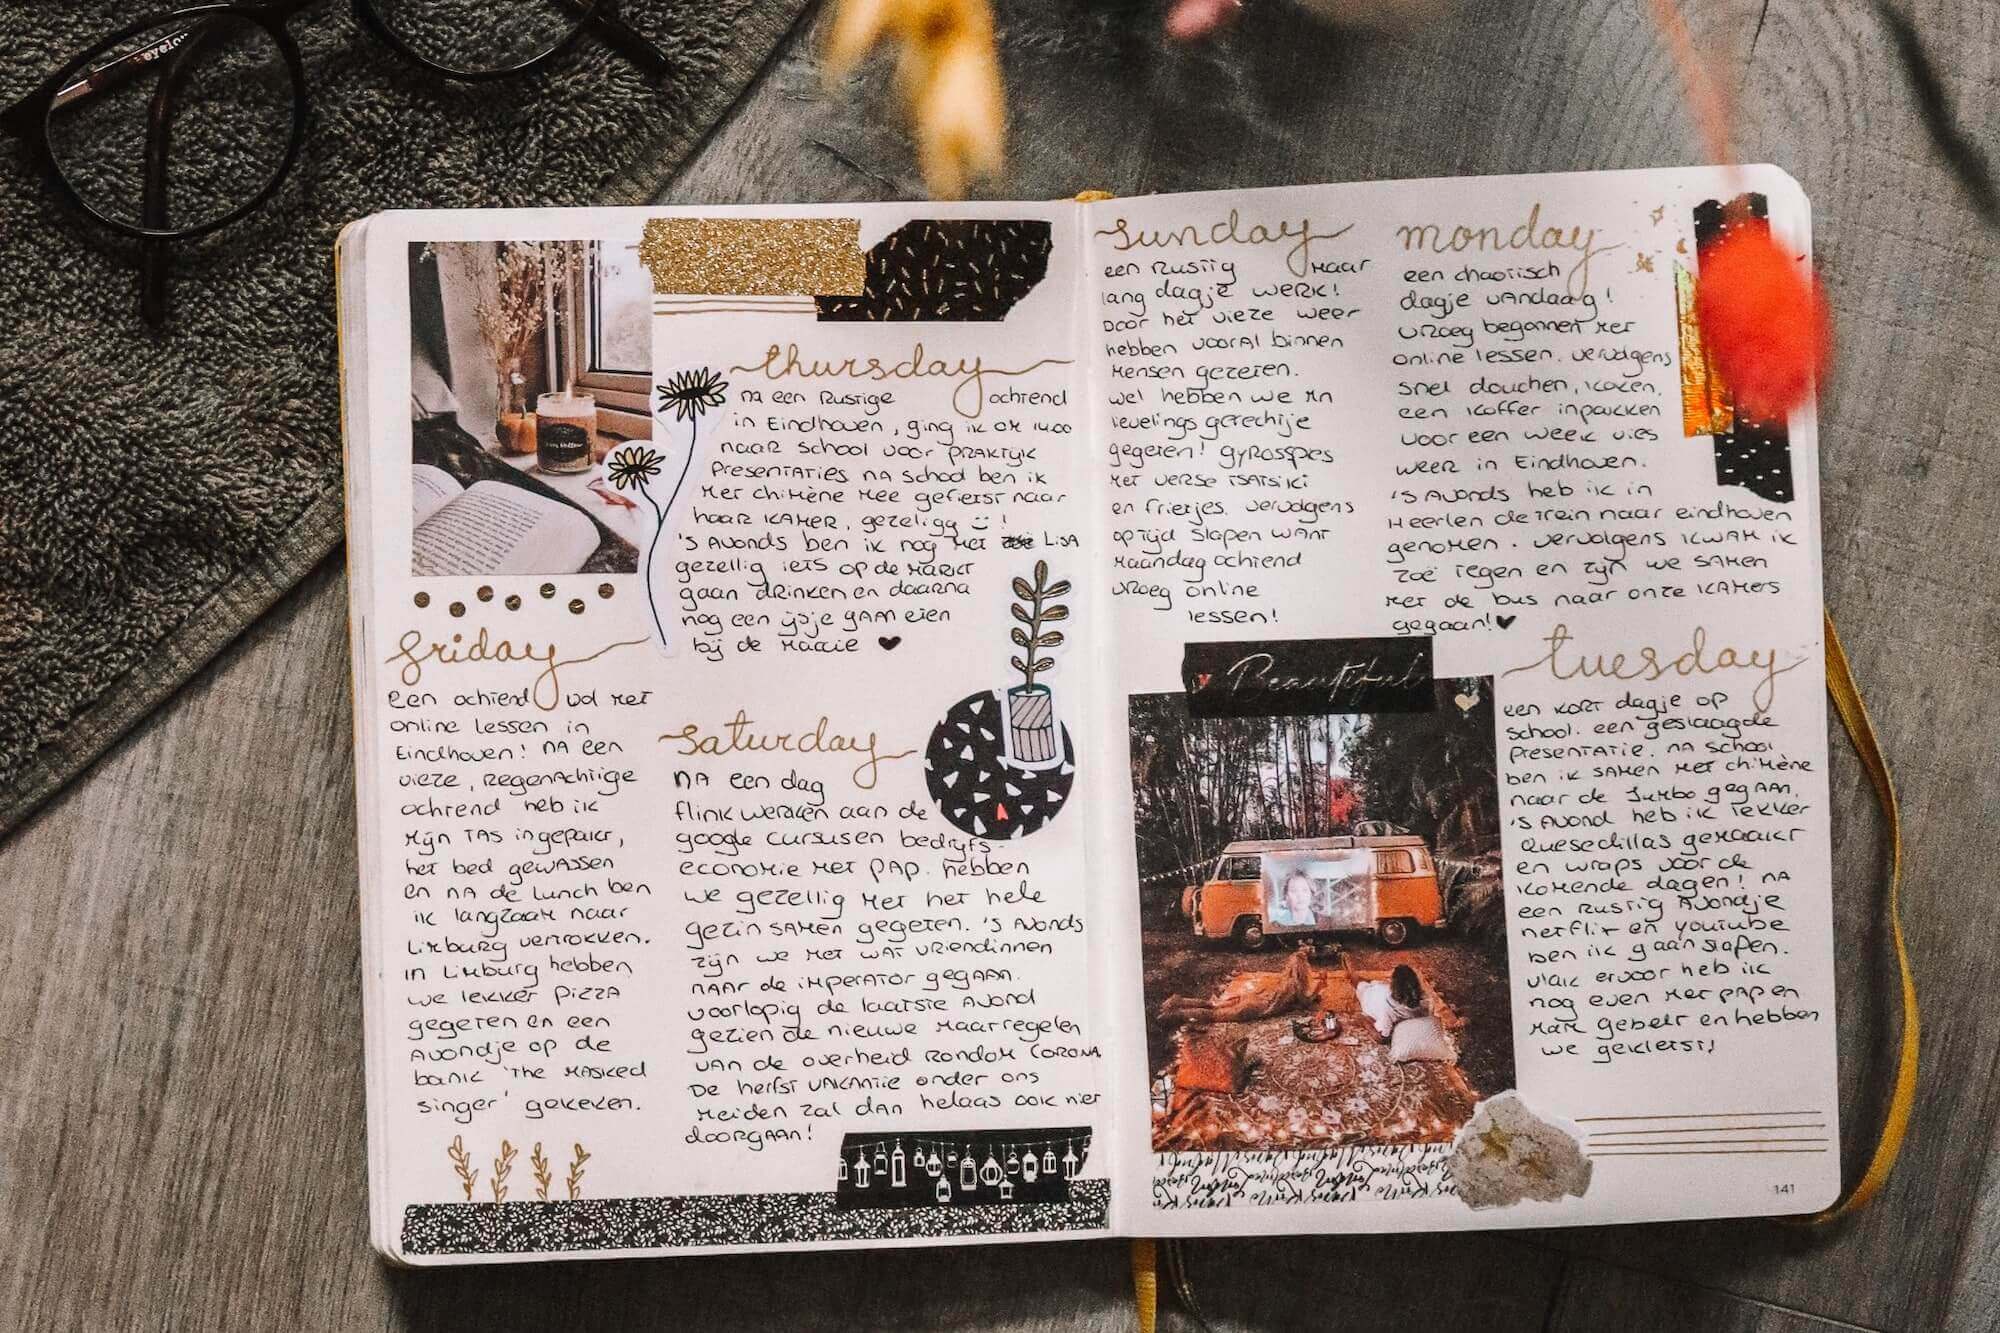 thursday
na een rustige ochtend
in Eindhoven, ging ik om 14.00
naar school voor praktijk
presentaties na school ben ik
met chimène mee gefietst naar
haar kamer, gezelligg !
's avonds ben ik nog met Lisa
gezellig iets op de markt
gaan drinken en daarna
nog een ijsje gaan eten
bij de
friday
een ochtend vol met
online lessen in
Eindhoven! na een
vieze, regenachtige
ochtend heb ik
mijn tas ingepakt,
het bed gewassen
en na de lunch ben
ik langzaam naar
Limburg vertrokken.
in Limburg hebben
we lekker pizza
gegeten en een
avondje op de
bank 'the masked
singer' gekeken.
saturday
na een dag
flink werken aan de
google cursus en bedrijfs-
economie met pap. hebben
we gezellig met het hele
gezin samen gegeten. 's avonds
zijn we met wat vriendinnen
naar de imperator gegaan.
voorlopig de laatste avond
gezien de nieuwe maatregelen
van de overheid rondom corona
De herfst vakantie onder ons
meiden zal dan helaas ook niet
doorgaan!
sunday
een rustig maar
lang dagje werk!
Door het vieze weer
hebben vooral binnen
mensen gezeten.
wel hebben we mn
levelings gerechtje
gegeten! gyrosspies
met verse tsatsiki
en frietjes. vervolgens
op tijd slapen want
maandag ochtend
vroeg online
lessen!
monday
een chaotisch
dagje vandaag!
vroeg begonnen met
online lessen. vervolgens
snel douchen, koken,
een koffer inpakken
voor een week vies
weer in Eindhoven.
's avonds heb ik in
Heerlen de trein naar eindhoven
genomen. vervolgens kwam ik
zoë tegen en zijn we samen
met de bus naar onze kamers
gegaan!
Beautiful
tuesday
een kort dagje op
school. een geslaagde
presentatie. na school
ben ik samen met chimène
naar de Jumbo gegaan.
's avond heb ik lekker
quesedillas gemaakt
en wraps voor de
komende dagen! na
een rustig avondje
netflix en youtube
ben ik gaan slapen.
vlak ervoor heb ik
nog even met pap en
mam gebelt en hebben
we gekletst!
141